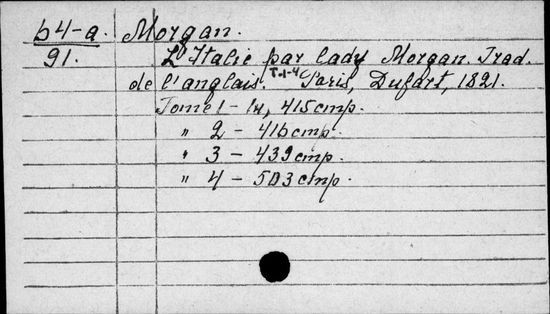 64-a. Morgan.
91. L'Italie par lady Morgan. Trad.
de l'anglais. T.1-4 Paris, Dufart, 1821.
Tome 1 - 14, 415 cmp.
" 2 - 416 cmp.
" 3 - 439 cmp.
" 4 - 503 cmp.